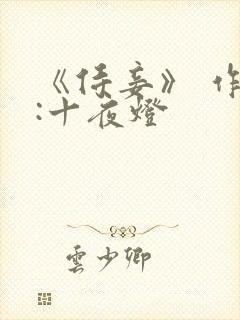 《侍妾》 作
:十夜燈
雲少卿